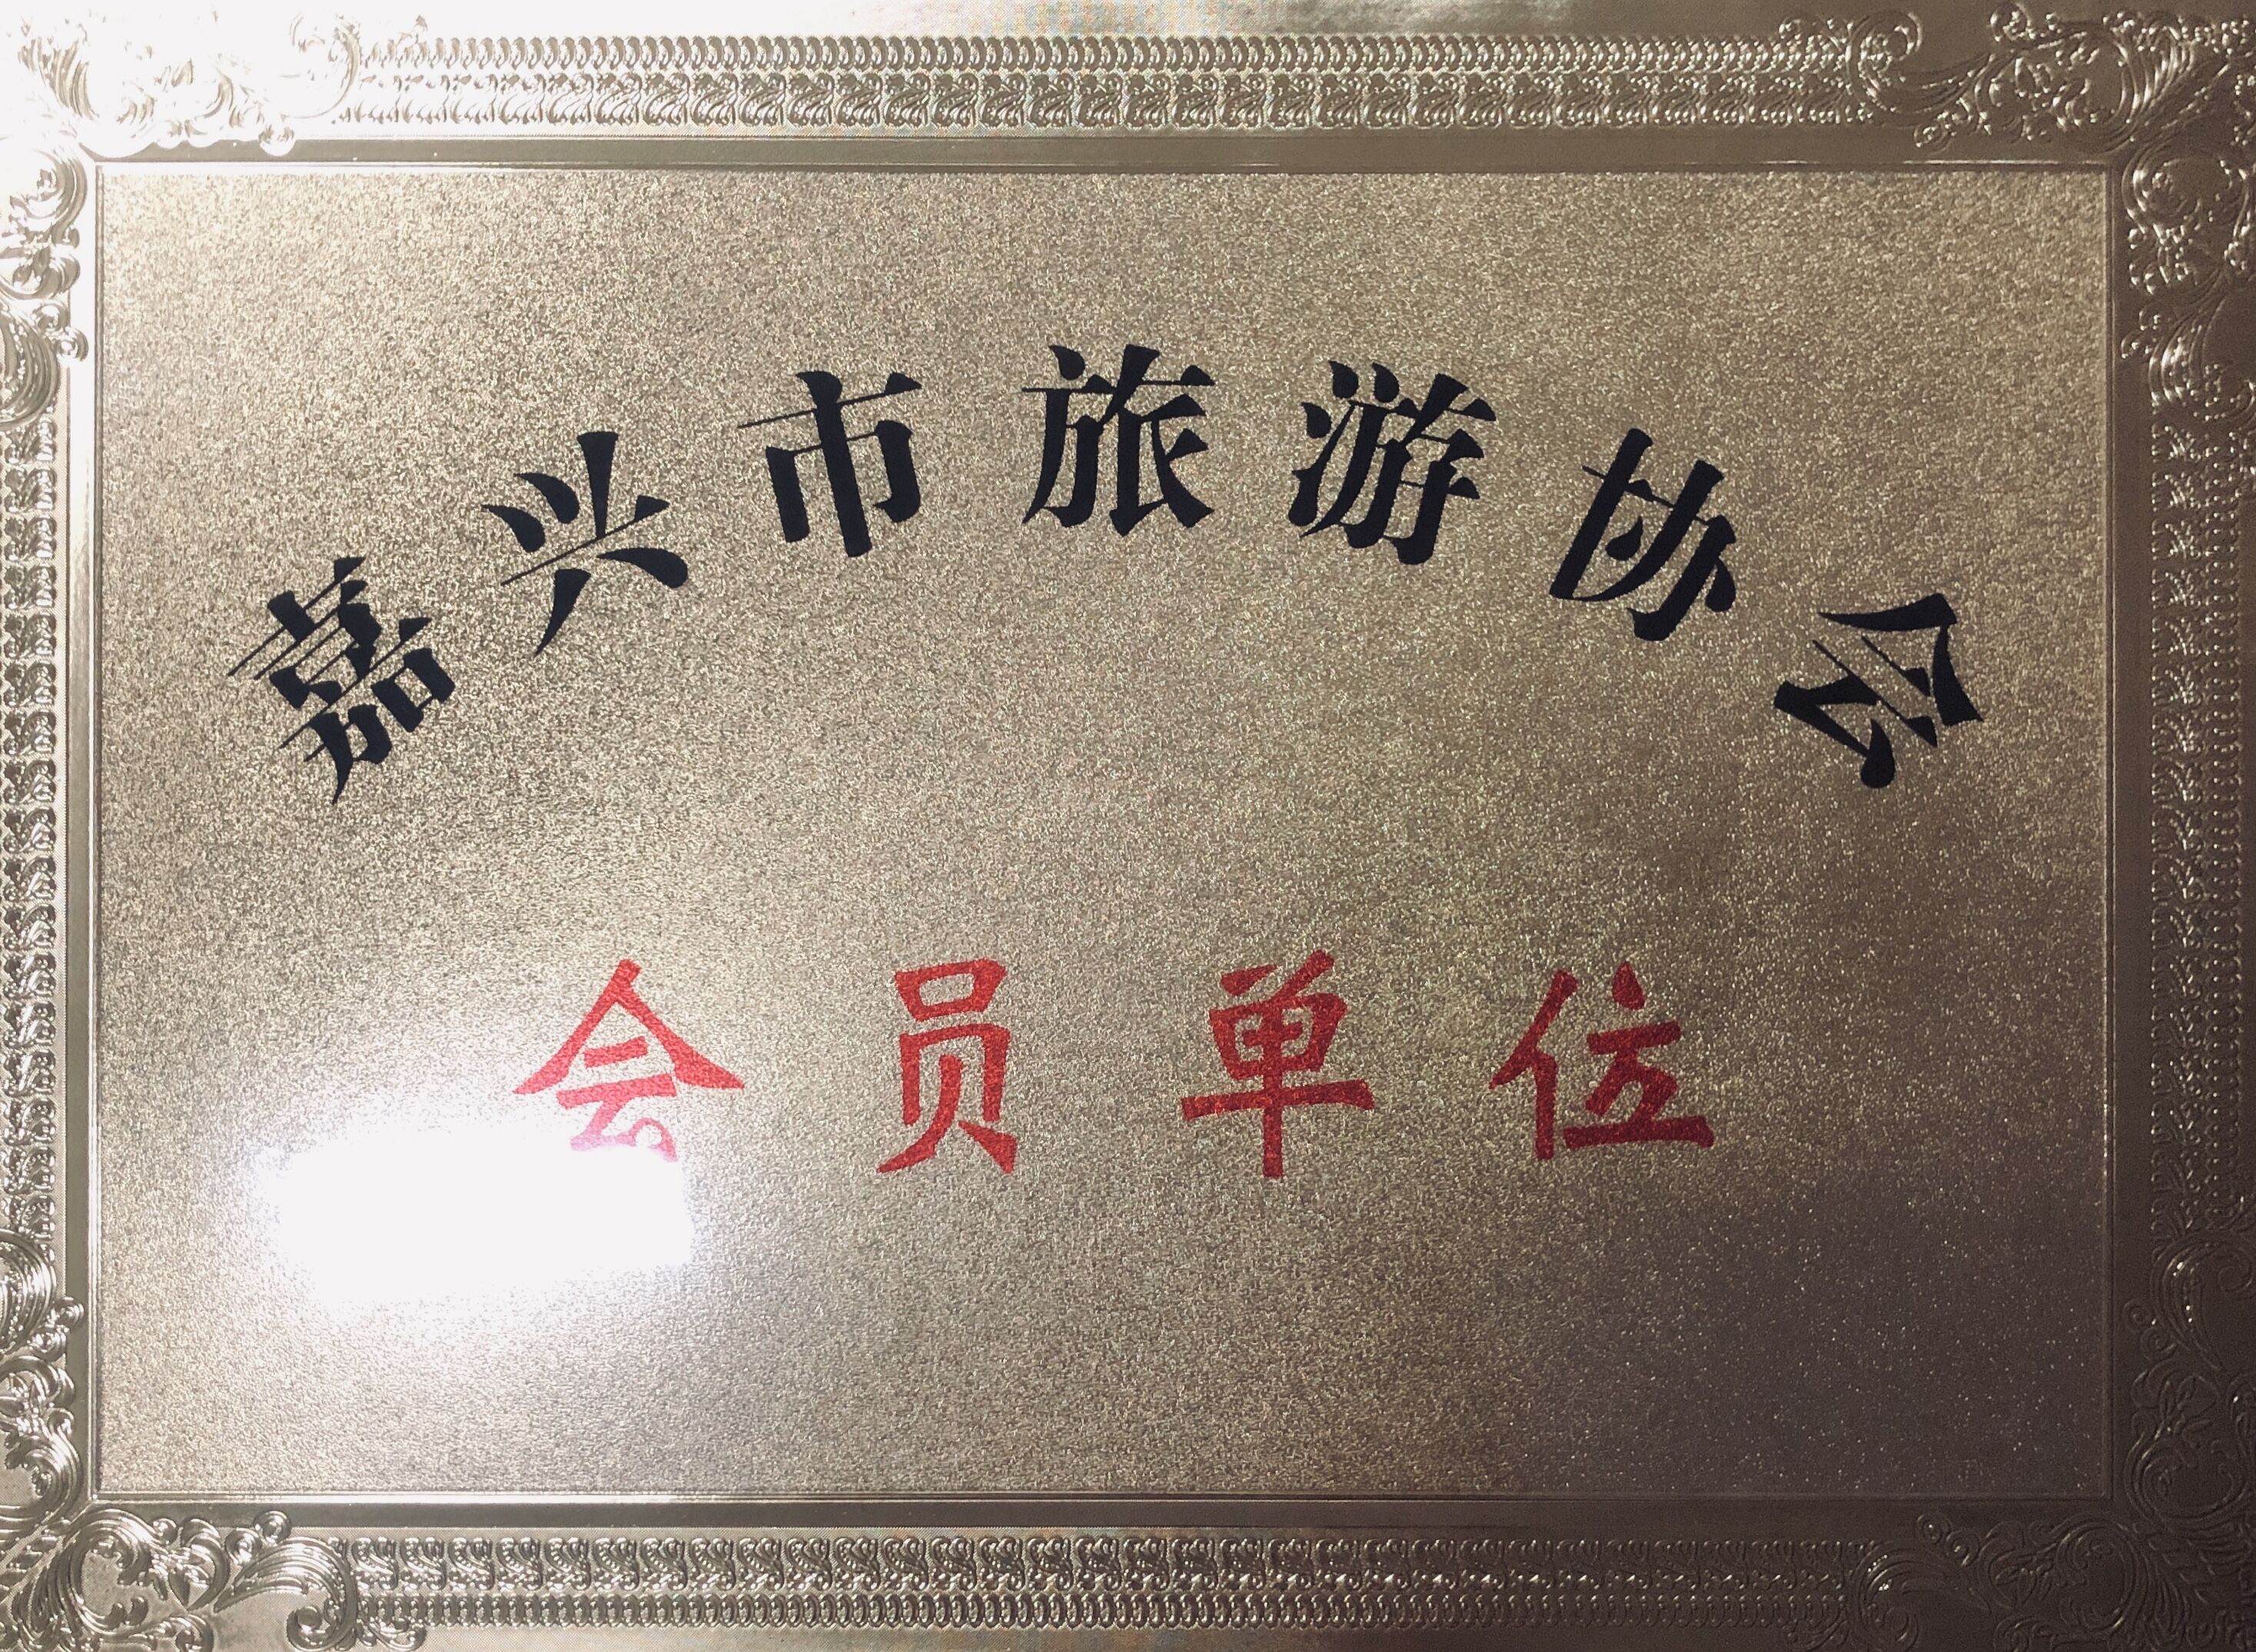 嘉兴市旅游协会
会员单位